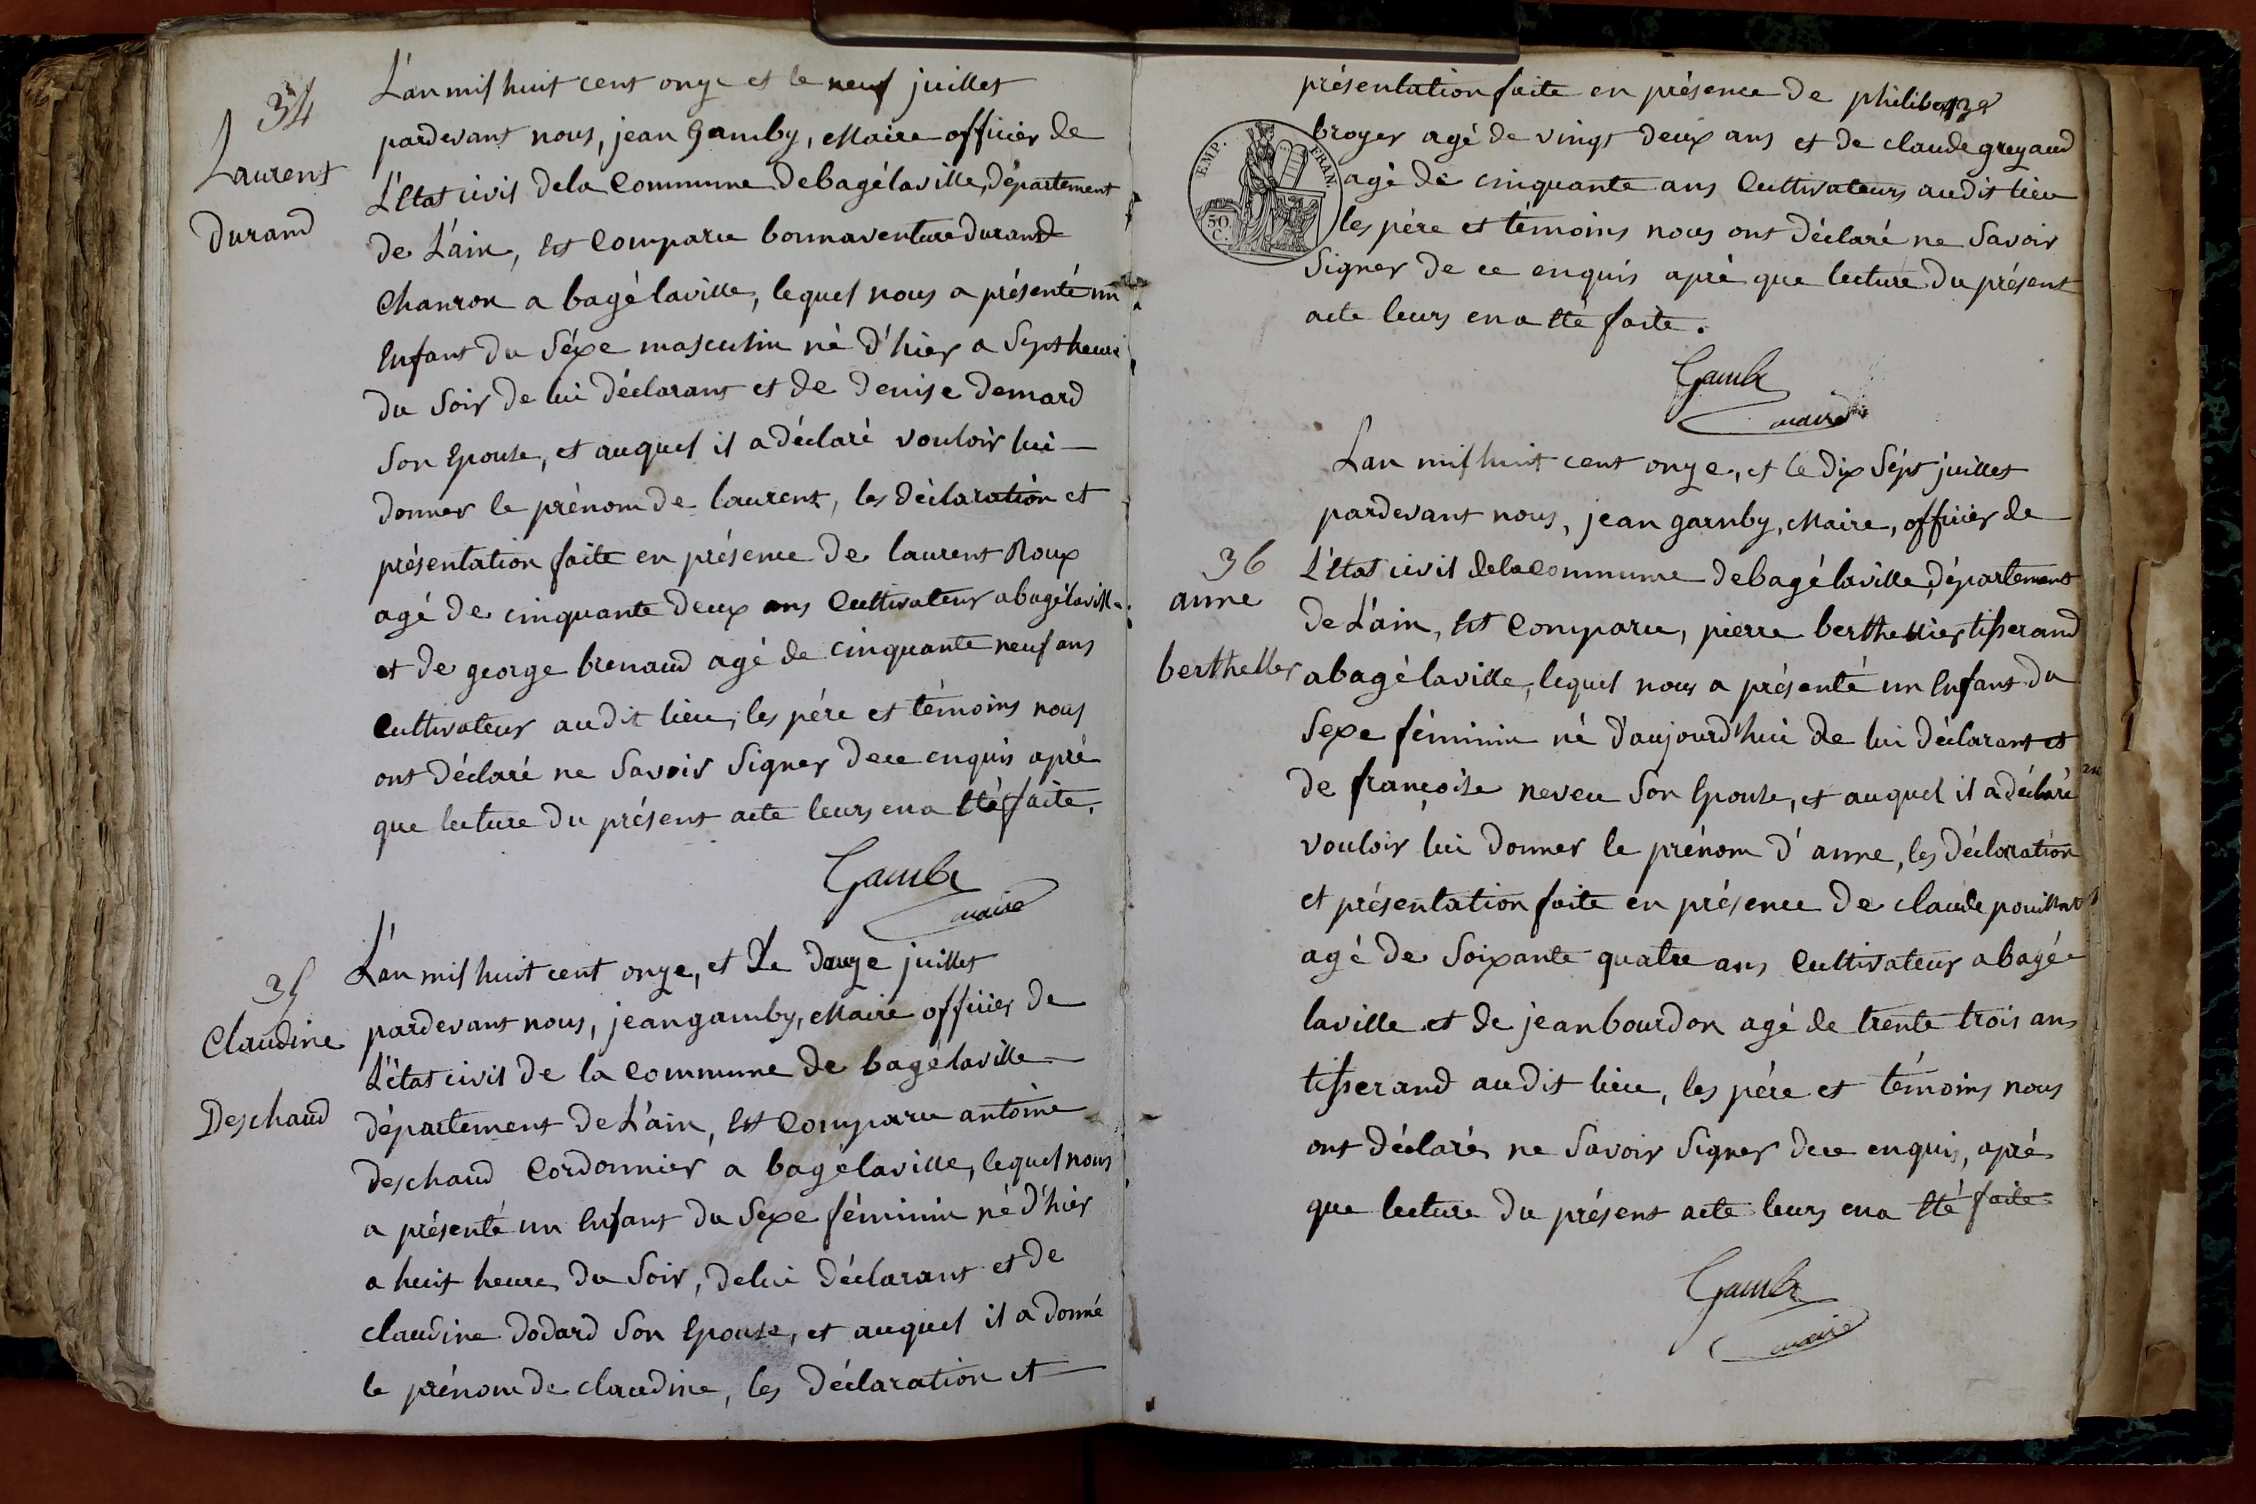 34
Laurent
durand
L'an mil huit cent onze et le neuf juillet
pardevant nous, jean Gamby, Maire officier de
L'Etat civil dela Commune debagélaville, département
de L'ain, Est Comparu bonnaventure durand
Chanron a bagélaville, lequel nous a présenté un
Enfant du Séxe masculin né d'hier a Septheure
du Soir de lui déclarant et de denise demard
Son Epouse, et auquel il adéclaré vouloir lui
donner le prénom de laurent, les déclaration et
présentation faite en présence de laurent Roux
agé de cinquante deux ans Cultivateur abagélaville
et de george brenaud agé de cinquante neuf ans
Cultivateur audit lieu, les pére et témoins nous
ont déclaré ne Savoir Signer dece enquis apré
que lecture du présent acte leurs ena Eté faite.
Gamby
maire
35
Claudine
Deschaud
L'an mil huit cent onze, et Le douze juillet
pardevant nous, jeangamby, Maire officier de
L'état civil de la Commune de bagélaville
département de L'ain, Est Comparu antoine
deschaud Cordonnier a bagélaville, lequel nous
a présenté un Enfant du Sexe féminin né d'hier
a huit heure du Soir, delui déclarant et de
claudine dodard Son Epouse, et auquel il a donné
le prénom de claudine, les déclaration et
présentation faite en présence de philibert
broyer agé de vingt deux ans et de claude greyaud
agé de cinquante ans Cultivateurs audit lieu
les pére et témoins nous ont déclaré ne Savoir
Signer de ce enquis apré que lecture du présent
acte leurs ena Eté faite.
EMP. FRAN.
50
C.
Gamby
maire
36
anne
berthellier
L'an mil huit cent onze, et le dix Sept juillet
pardevant nous, jean gamby, Maire, officier de
L'Etat civil delacommune debagélaville, département
de L'ain, Est Comparu, pierre berthellier tisserand
abagélaville, lequel nous a présenté un Enfant du
Sexe féminin né d'aujourd'hui de lui déclarant et
de françoise neveu Son Epouse, et auquel il a déclaré
vouloir lui donner le prénom d'anne, les déclaration
et présentation faite en présence de claude pouillat
agé de Soixante quatre ans Cultivateur abagé
laville et de jeanbourdon agé de trente trois ans
tisserand audit lieu, les pére et témoins nous
ont déclaré ne Savoir Signer dece enquis, apré
que lecture du présent acte leurs ena Eté faite
Gamby
maire